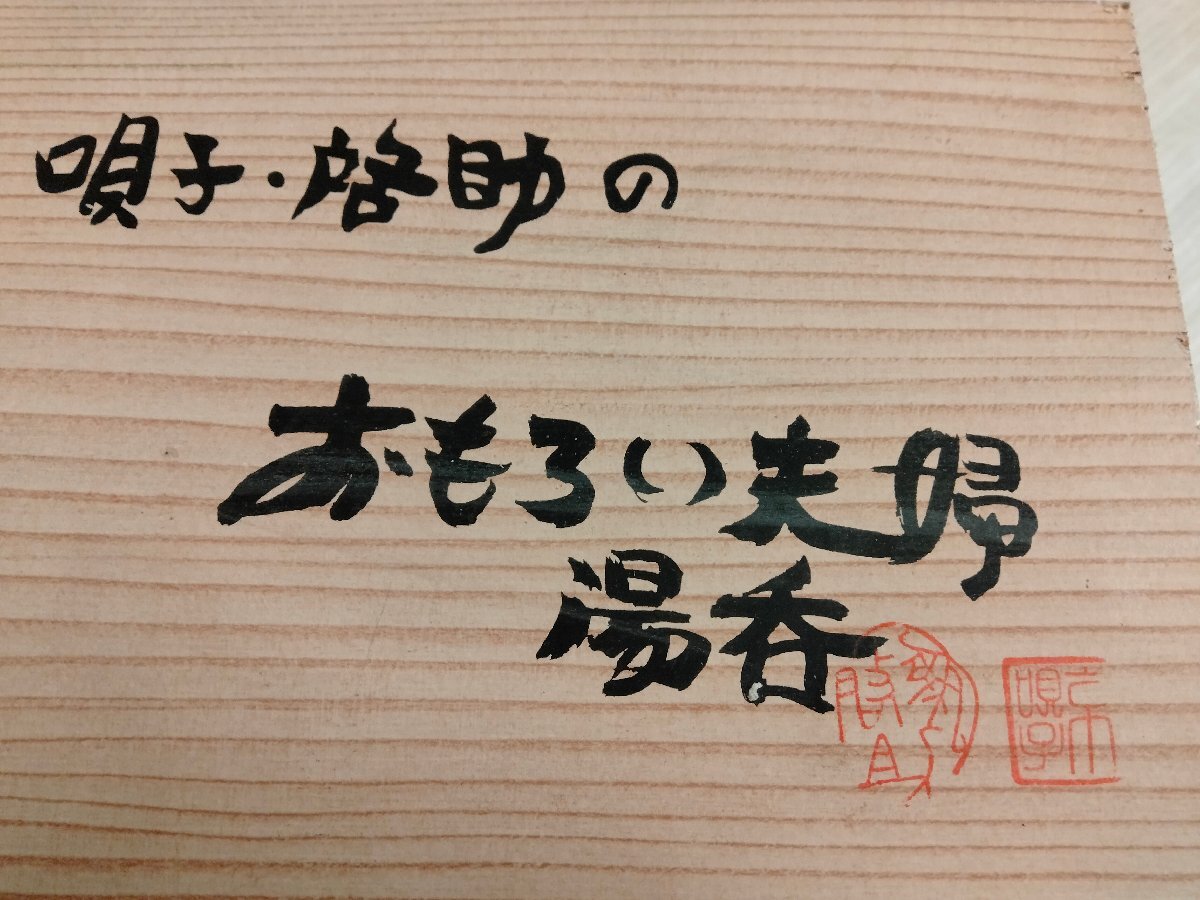 唄子・啓助の
おもろい夫婦
湯呑
唄子